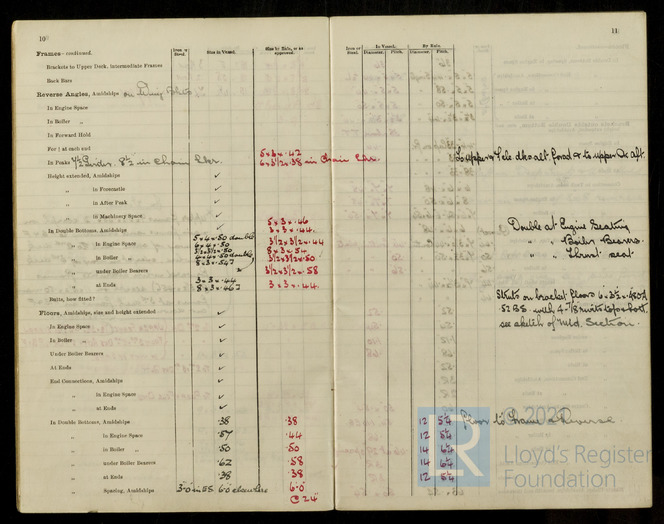 10
Frames—continued.
Iron or Steel. Size in Vessel. Size by Rule, or as approved.
Brackets to Upper Deck, intermediate Frames
Back Bars
Reverse Angles, Amidships on
In Engine Space
In Boiler „
In Forward Hold
For ⅓ at each end
5 x 3 x .42
In Peaks 8½ in Chain Lkr. 6 x 3½ x .38 in Chain Lkr.
Height extended, Amidships ✓
„ in Forecastle ✓
„ in After Peak ✓
„ in Machinery Space ✓
In Double Bottoms, Amidships ✓ 5 x 3 x .46
3 x 3 x .44
„ in Engine Space 5 x 4 x .50 double 3½ x 3½ x .44
4 x 4 x .50 8 x 3 x .54
„ in Boiler „ 3½ x 3½ x .50 3½ x 3½ x .50
„ under Boiler Bearers 3½ x 3½ x .58
„ at Ends 3 x 3 x .44 3 x 3 x .44
8 x 3 x .46
Butts, how fitted?
Floors, Amidships, size and height extended ✓
In Engine Space ✓
In Boiler „ ✓
Under Boiler Bearers ✓
At Ends ✓
End Connections, Amidships ✓
„ in Engine Space ✓
„ at Ends ✓
In Double Bottoms, Amidships .38 .38
„ in Engine Space .57 .44
„ in Boiler „ .50 .50
„ under Boiler Bearers .62 .58
„ at Ends .38 .38
„ Spacing, Amidships 3'0" in 6'0" elsewhere 6'0"
@ 24"
11
Iron or Steel. In Vessel. By Rule.
Diameter. Pitch. Diameter. Pitch.
to upper & alt forwd & to upper Dk aft.
Double at Engine Seating
„ „ Boiler Bearers
„ „ Thrust seat
Struts on bracket floors
with 4-7/8 rivets top & bott.
see sketch of Mid. Section.
12 5¼ Floor to Frame & Reverse
12 5¼
14 5¼
14 5¼
12 5¼
R © 2021
Lloyd's Register
Foundation